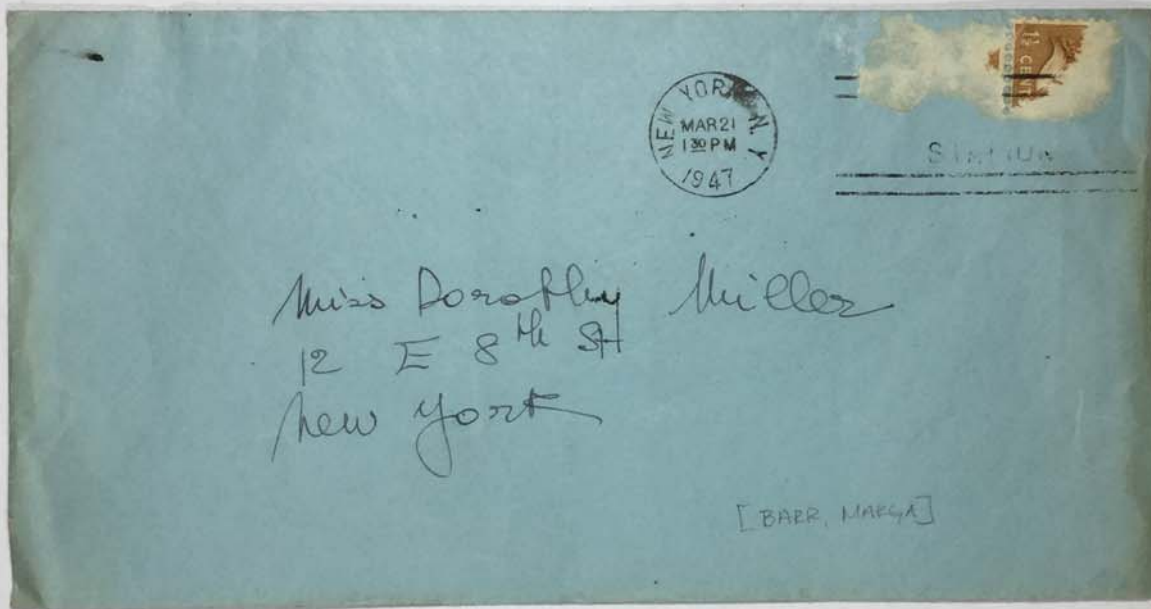 1½ CENT
NEW YORK, N.Y.
MAR 21
1 30 PM
1947
Miss Dorothy Miller
12 E 8th St
New York
[BARR, MARGA]